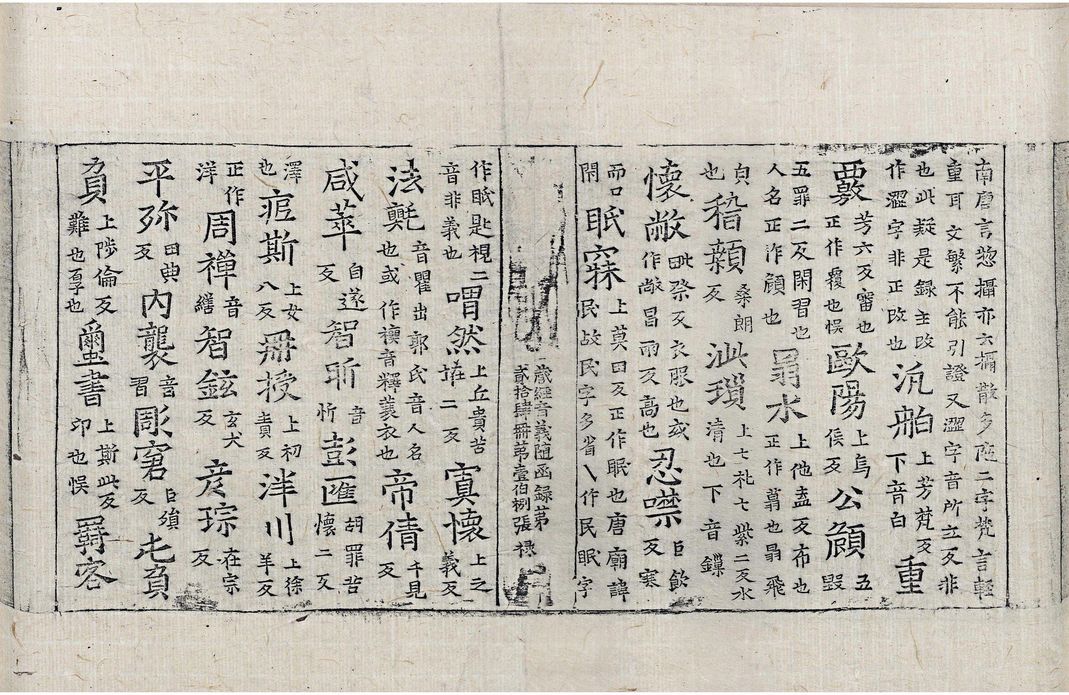 南唐言惣攝亦六攝散多隨二字梵言輕
重耳文繁不能引證又澀字音所立反非
也此疑是錄主改
作澀字非正改也 汎舶 上芳梵反
下音白 重
覈 芳六反審也
正作覆也悮 歐陽 上烏
侯反 公頠 五
毀
五罪二反閑習也
人名正作顧也 翯水 上他盍反布也
正作蒻也翯飛
皃
也 稽顙 桑朗
反 泚瑣 上七礼七紫二反水
清也下音鏁
懷敝 毗祭反衣服也或
作敞昌兩反高也 忍噤 巨飲
反寒
而口
閇 眠寐 上莫田反正作眠也唐廟諱
民故民字多省乀作民眠字
藏經音義隨函錄第
貳拾肆冊苐壹伯捌張 祿
作眂匙視二
音非義也 喟然 上丘貴苦
塠二反 寘懷 上之
義反
法㲲 音瞿出郭氏音人名
也或作襪音釋蓑衣也 帝倩 千見
反
咸萃 自遂
反 智昕 音
忻 彭匯 胡罪苦
懷二反
澤
也 痆斯 上女
八反 冊授 上初
責反 洋川 上徐
羊反
正作
洋 周禪 音
繕 智鉉 玄犬
反 彦琮 在宗
反
平殄 田典
反 內襲 音
習 彫窘 巨殞
反 屯負
負 上陟倫反
難也厚也 璽書 上斯此反
印也悮 羇客